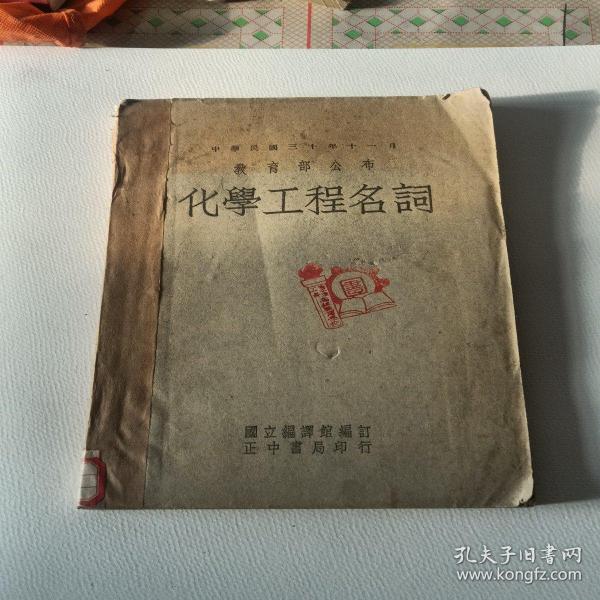 中華民國三十年十一月
教育部公布
化學工程名詞
國立編譯館編訂
正中書局印行
孔夫子旧书网
www.kongfz.com